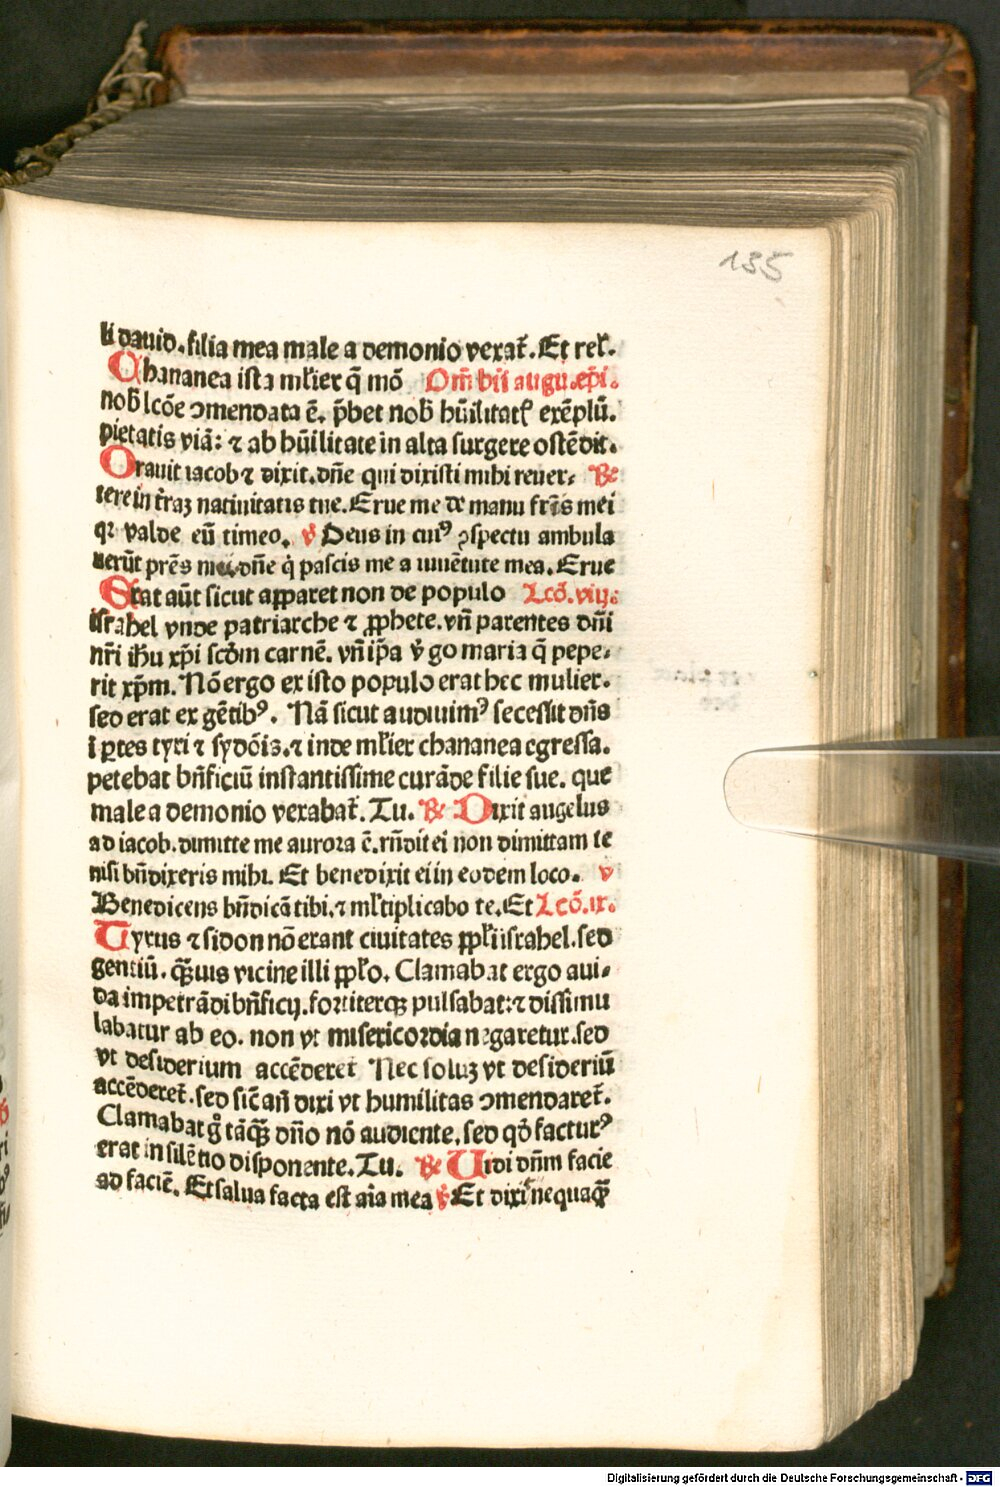 135
li dauid. filia mea male a demonio vexat̄. Et rel̄.
Chananea ista ml̄ier q̄ mō Om̄ bt̄i augu. ep̄i.
nob̄ lcōe ↄmendata ē. p̄bet nob̄ hūilitatꝭ exēplū.
pietatis viā: ⁊ ab hūilitate in alta surgere ostēdit.
Orauit iacob ⁊ dixit. dn̄e qui dixisti mihi reuer⸗ ℟
tere in t̄raꝫ natiuitatis tue. Erue me de manu fr̄is mei
qꝛ valde eū timeo. ℣ Deus in cuiꝰ ↄspectu ambula
uerūt pr̄es mei. dn̄e q̇ pascis me a iuuētute mea. Erue
Stat aūt sicut apparet non de populo Lcō. viij.
israhel vnde patriarche ⁊ ꝓphete. vn̄ parentes dn̄i
nr̄i ih̄u xp̄i scd̄m carnē. vn̄ ip̄a v̄go maria q̄ pepe⸗
rit xp̄m. Nō ergo ex isto populo erat hec mulier.
sed erat ex gētibꝰ. Nā sicut audiuimꝰ secessit dn̄s
ī ꝑtes tyri ⁊ sydōis. ⁊ inde ml̄ier chananea egressa.
petebat bn̄ficiū instantissime curāde filie sue. que
male a demonio vexabat̄. Tu. ℟ Dixit angelus
ad iacob. dimitte me aurora ē. rn̄dit ei non dimittam te
nisi bn̄dixeris mihi. Et benedixit ei in eodem loco. ℣
Benedicens bn̄dicā tibi. ⁊ ml̄tiplicabo te. Et Lcō. ix.
Tyrus ⁊ sidon nō erant ciuitates ppl̄i israhel. sed
gentiū. q̄ꝫuis vicine illi ppl̄o. Clamabat ergo aui⸗
da impetrādi bn̄ficij. fortiterqꝫ pulsabat: ⁊ dissimu
labatur ab eo. non vt misericordia negaretur. sed
vt desiderium accēderet̄ Nec soluꝫ vt desideriū
accēderet̄. sed sic̄ an̄ dixi vt humilitas ↄmendaret̄.
Clamabat gͦ tāq̄ꝫ dn̄o nō audiente. sed qd̄ facturꝰ
erat in silētio disponente. Tu. ℟ Uidi dn̄m facie
ad faciē. Et salua facta est aīa mea ℣ Et dixit nequaq̄ꝫ
Digitalisierung gefördert durch die Deutsche Forschungsgemeinschaft - DFG